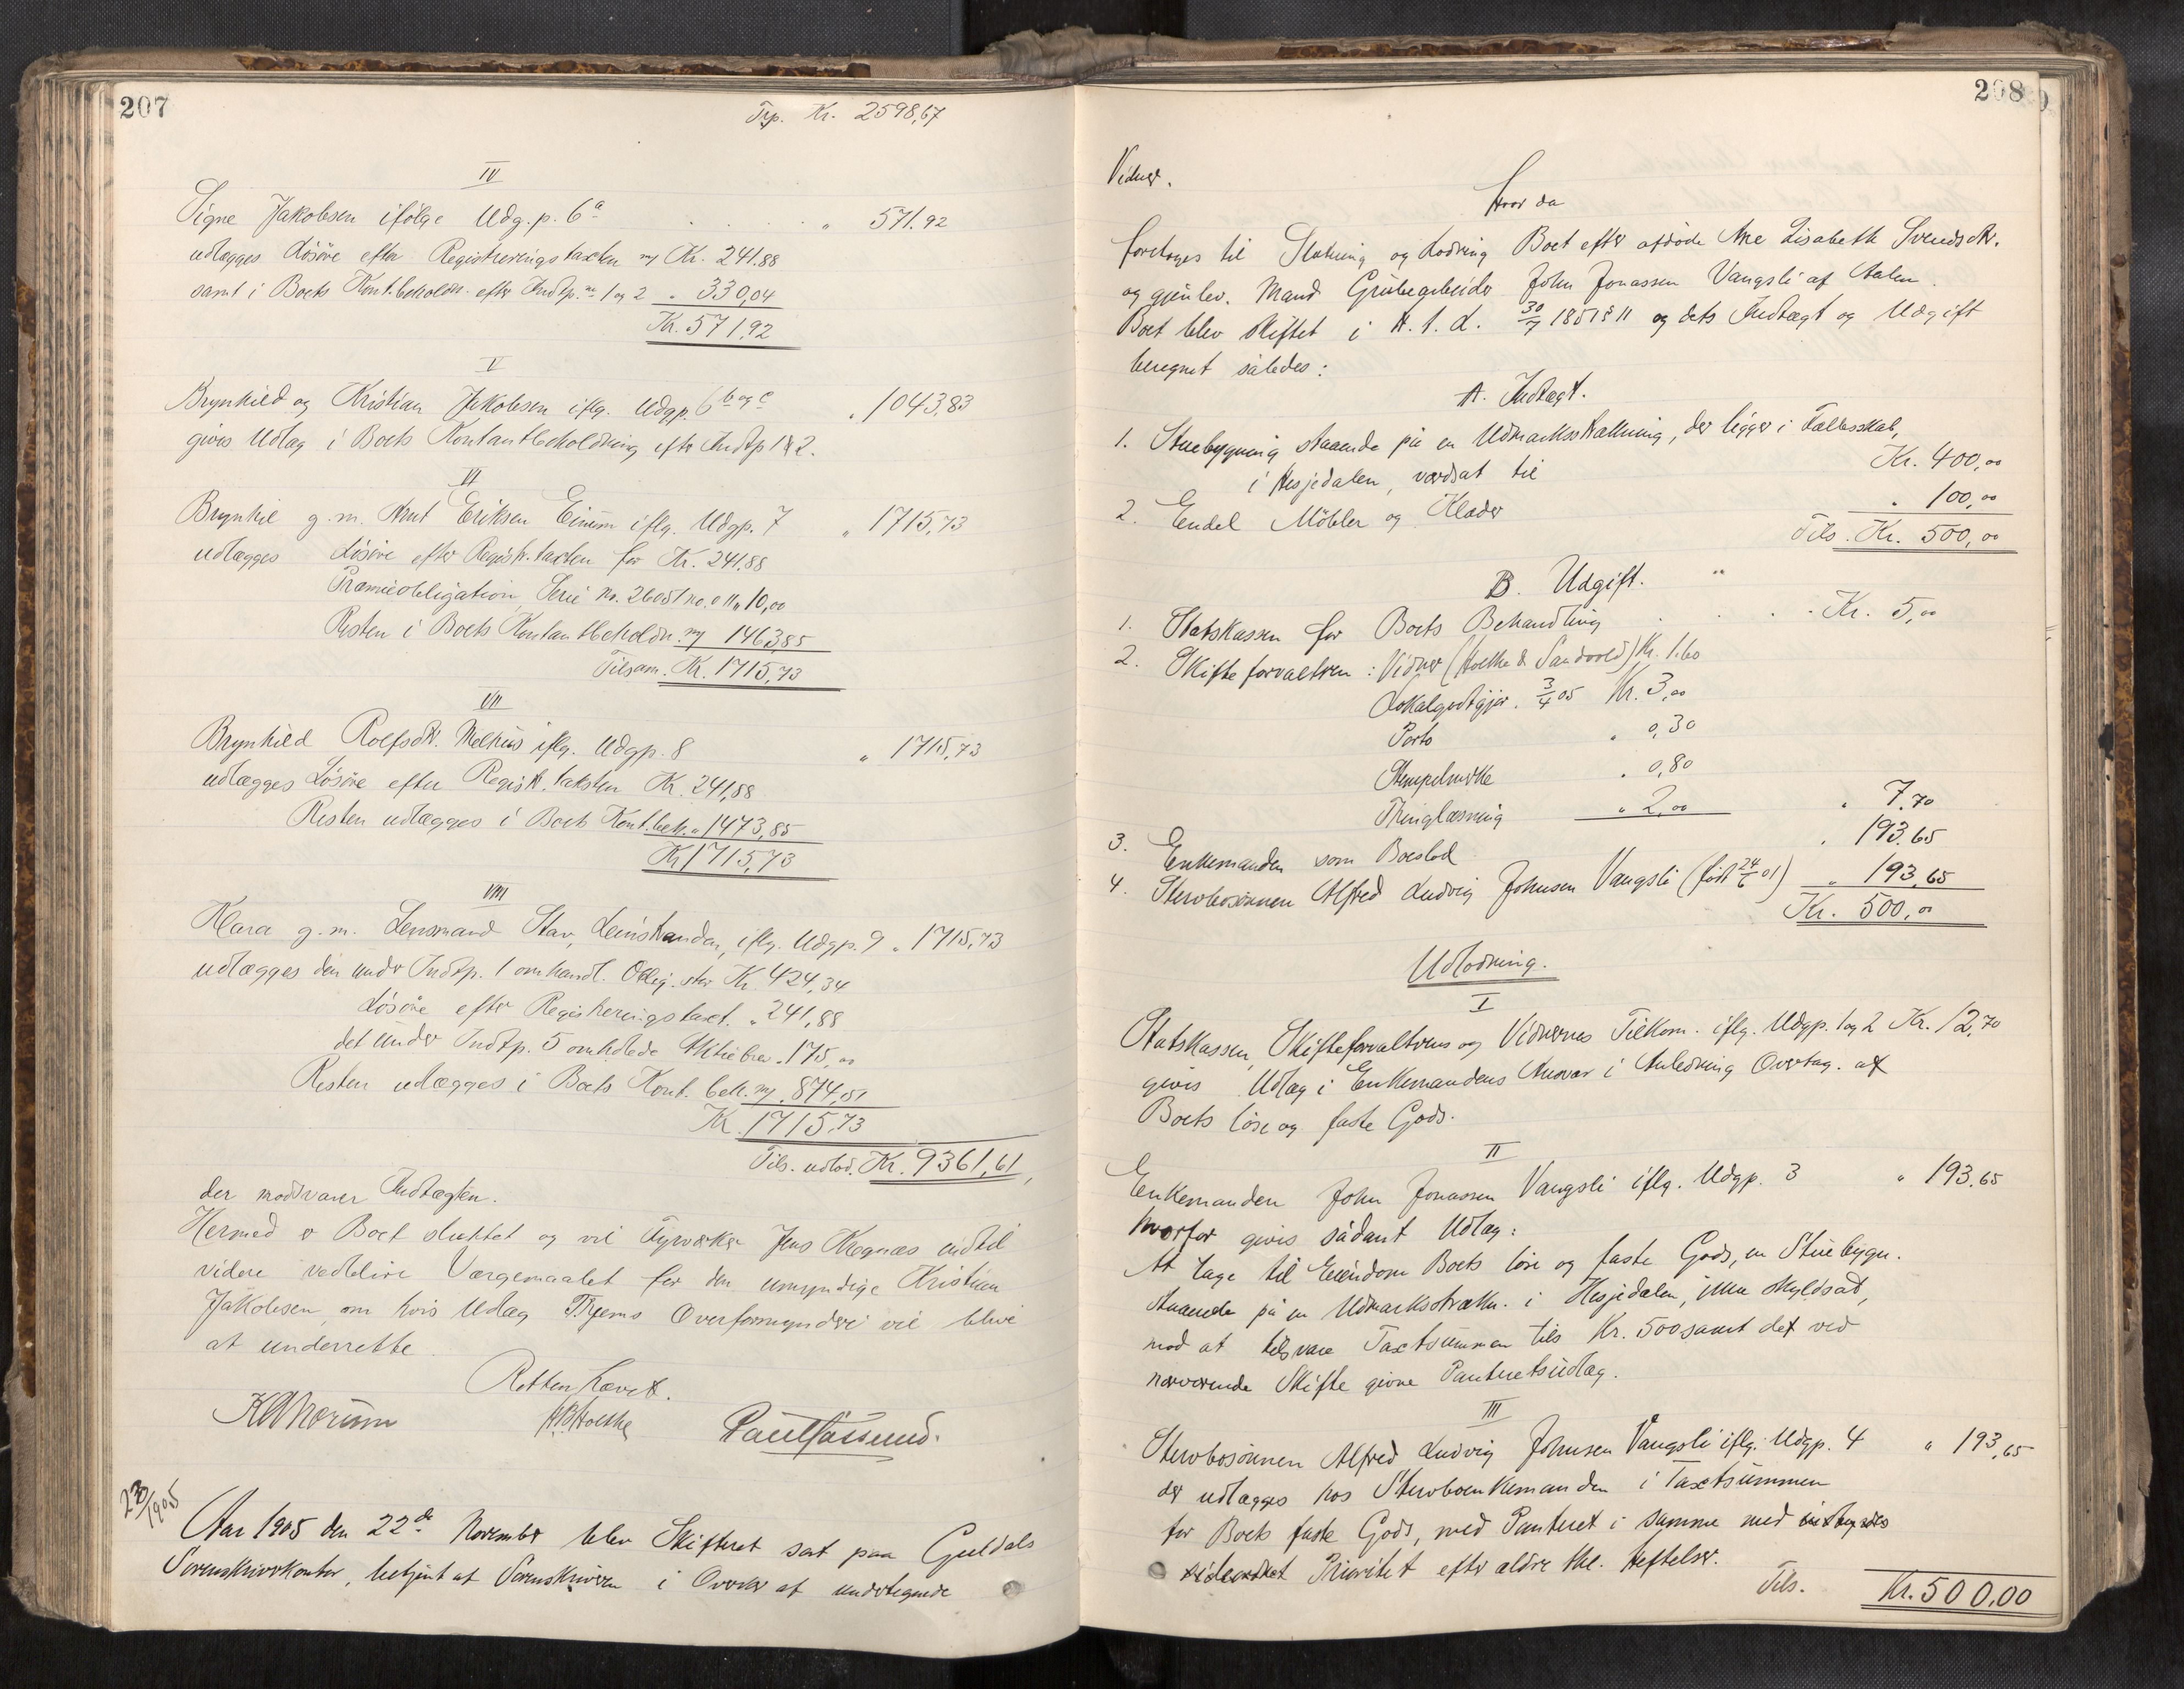 207
Trp. Kr. 2598,67
IV
Signe Jakobsen ifölge Udg. p. 6a . . . " 571.92
udlægges Lösöre efter Registreringstaxten m/ Kr. 241.88
samt i Boets Kont.beholdn. efter Indtp. No 1 og 2 " 330,04
Kr. 571,92
V
Brynhild og Kristian Jakobsen iflg. Udgp. 6 b og c " 1043,83
givis Udlæg i Boets Kontantbeholdning eftr Indtp 1 & 2.
VI
Brynhil g. m. Arnt Eriksen Einum iflg. Udgp. 7 " 1715,73
udlægges Lösöre efter Registr. taxten for Kr. 241.88
Præmieobligation, Serie No. 2605 / No. 011 " 10,00
Resten i Boets Kontantbeholdn. m/ 1463,85
Tilsam. Kr. 1715,73
VII
Brynhild Rolfsdtr. Melhus iflg. Udgp. 8 " 1715,73
udlægges Lösöre efter Registr. taksten Kr. 241,88
Resten udlægges i Boets Kont. beh. " 1473,85
Kr 1715,73
VIII
Klara g. m. Lensmand Stav, Leinstranden, iflg. Udgp. 9 " 1715,73
udlægges den under Indtp. 1 omhandl. Oblig. stor Kr. 424,34
Lösöre efter Registreringstaxt. " 241,88
det under Indtp. 5 omhdlede Aktiebrev " 175,00
Resten udlægges i Boets Kont. beh. m/ " 874,51
Kr. 1715,73
Tils. udlod. Kr. 9361,61,
der modsvarer Indtægten.
Hermed er Boet sluttet og vil Fyrvorkr Jens Krognæs indtil
videre vedblive Værgemaalet for den umyndige Kristian
Jakobsen, om hvis Udlæg Thjems Overformynderi vil blive
at underrette.
Retten hævet.
KAMorum H.B. Holthe Paul Fossund.
22/11 1905
Aar 1905 den 22de November blev Skifteret sat paa Guldals
Sorenskriverkontor, betjent af Sorenskriveren i Overvær af undertegnede
208
Vidner.
Hvor da
foretoges til Slutning og Lodning Boet efter afdöde Ane Lisabeth Svendsdtr.
og gjenlev. Mand Grubearbeider John Jonassen Vangsli af Aalen.
Boet blev skiftet i H. t. L. 30/7 1851 § 11 og dets Indtægt og Udgift
beregnet således:
A. Indtægt.
1. Stuebygning staaende på en Udmarksstrækning, der ligger i Fællesskab,
i Hesjedalen, værdsat til Kr. 400,00
2. Endel Möbler og Klæder " 100,00
Tils. Kr. 500,00
B. Udgift.
1. Statskassen for Boets Behandling . . . Kr. 5,00
2. Skifteforvaltren: Vidner (Holthe & Sandvold) Kr. 1.60
Lokalgodtgjör. 3/4 05 Kr. 3,00
Porto " 0,30
Stempelmerke " 0,80
Thinglæsning " 2,00 " 7,70
3. Enkemanden som Boeslod " 193.65
4. Stervbosönnen Alfred Ludvig Johnsen Vangsli (födt 24/6 01) " 193,65
Kr. 500,00
Udlodning.
I
Statskassen, Skifteforvaltrens og Vidnernes Tilkom. iflg. Udgp. 1 og 2 Kr. 12,70
givis Udlæg i Enkemandens Ansvar i Anledning Overtag. af
Boets löse og faste Gods.
II
Enkemanden John Jonassen Vangsli iflg. Udgp. 3 " 193.65
hvorfor givis sådant Udlæg:
At tage til Eiendom Boets löse og faste Gods, en Stuebygn.
staaende på en Udmarksstrækn. i Hesjedalen, ikke skyldsat,
mod at tilsvare Taxtsummen tils Kr. 500 samt det ved
nærværende Skifte givne Panteretsudlæg.
III
Stervbosönnen Alfred Ludvig Johnsen Vangsli iflg. Udgp. 4 " 193,65
der udlægges hos Stervboenkemanden i Taxtsummen
for Boets faste Gods, med Panteret i samme med indbyrdes
sideordnet Prioritet efter ældre thl. Heftelser.
Tils. Kr. 500,00